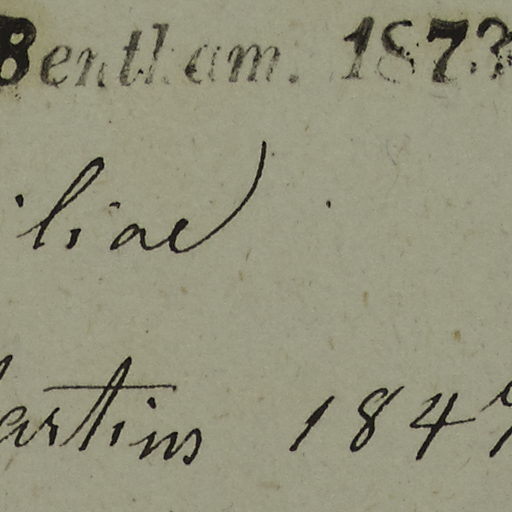 Bentham. 1873
iliae
artins 184